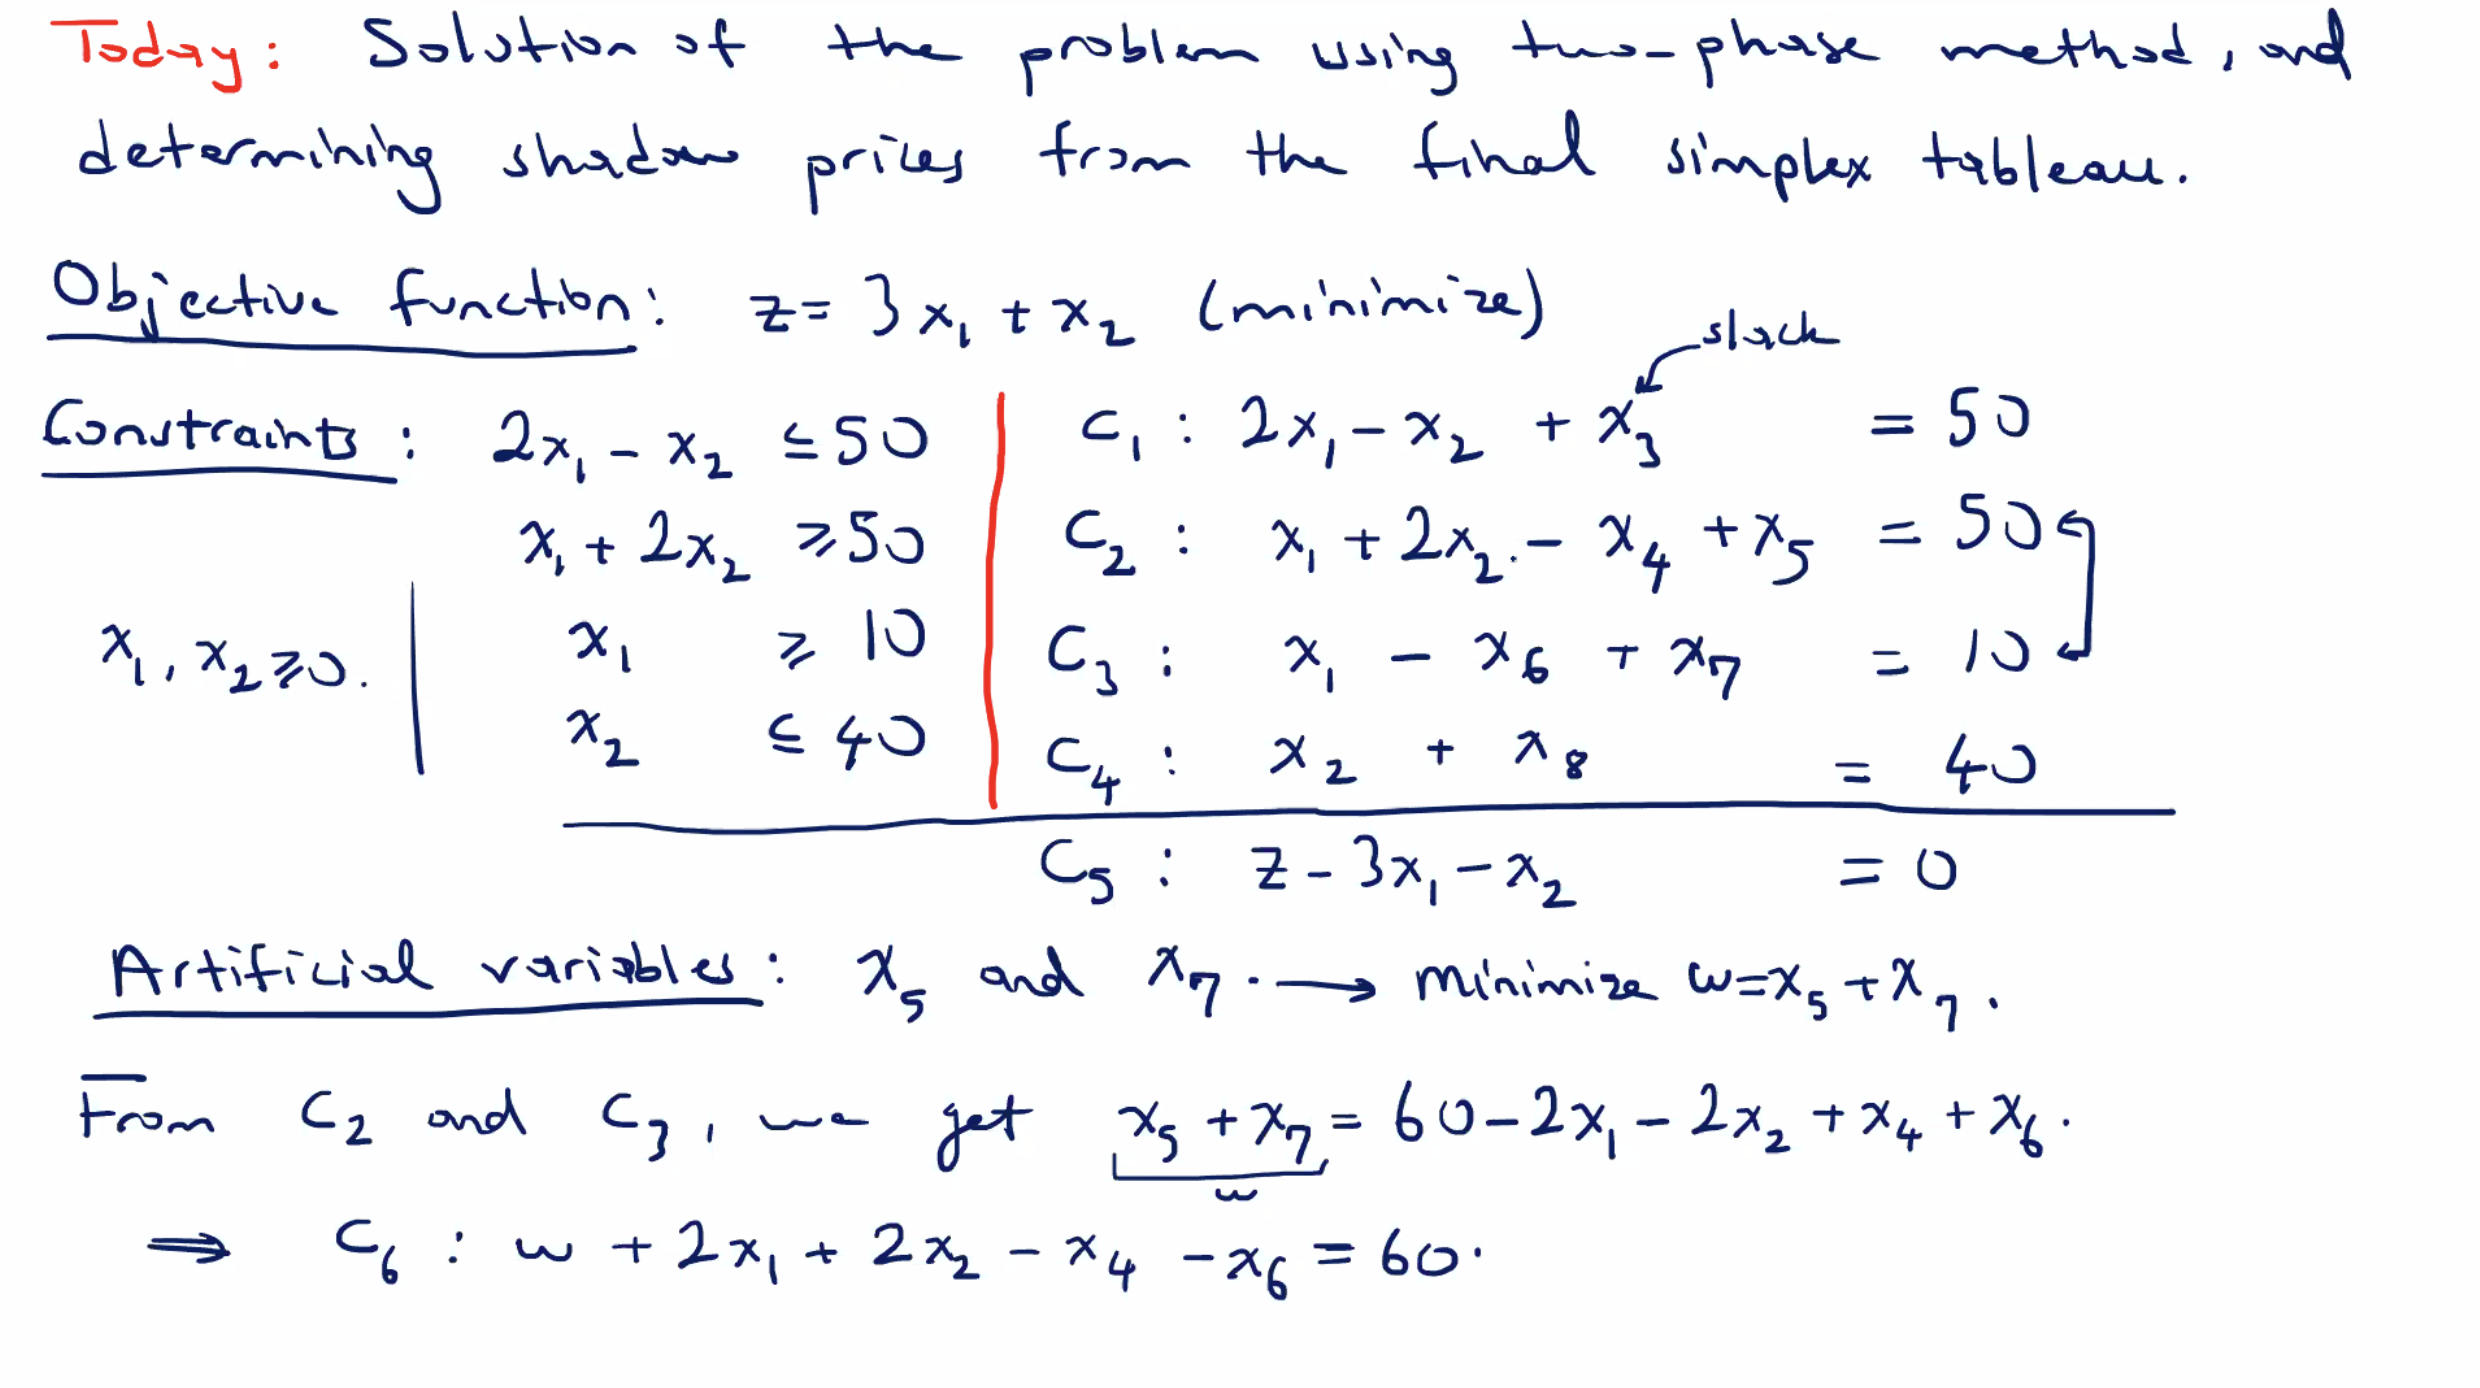 Today: Solution of the problem using two-phase method, and
determining shadow prices from the final simplex tableau.
Objective function: z = 3x₁ + x₂ (minimize)
slack
Constraints: 2x₁ - x₂ ≤ 50
x₁ + 2x₂ ≥ 50
x₁ ≥ 10
x₂ ≤ 40
x₁, x₂ ≥ 0.
C₁ : 2x₁ - x₂ + x₃ = 50
C₂ : x₁ + 2x₂ - x₄ + x₅ = 50
C₃ : x₁ - x₆ + x₇ = 10
C₄ : x₂ + x₈ = 40
C₅ : z - 3x₁ - x₂ = 0
Artificial variables: x₅ and x₇. → minimize w = x₅ + x₇.
From C₂ and C₃, we get x₅ + x₇ = 60 - 2x₁ - 2x₂ + x₄ + x₆.
w
⇒ C₆ : w + 2x₁ + 2x₂ - x₄ - x₆ = 60.